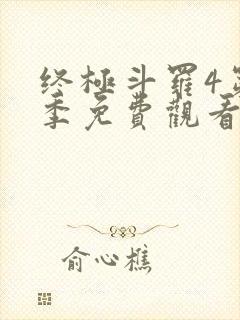 终極斗羅4
季免費觀看
俞心樵